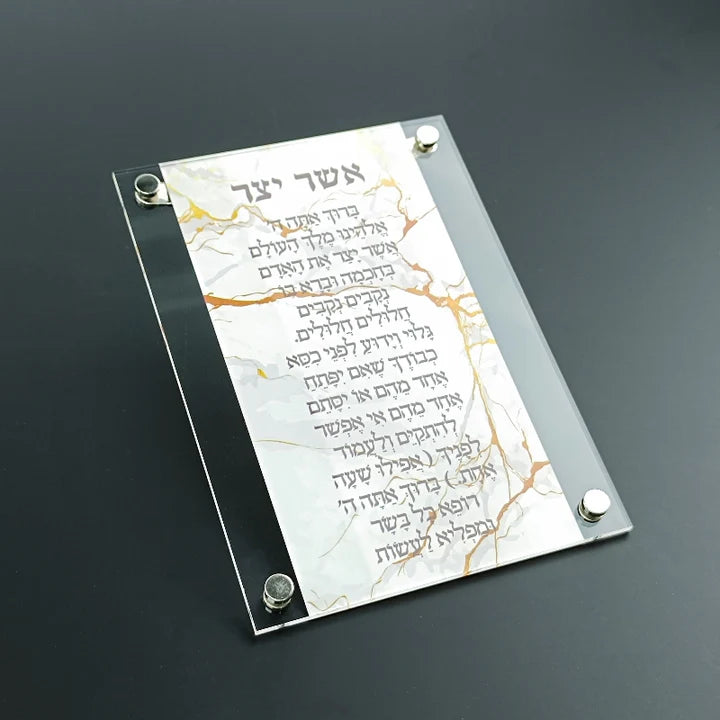 אשר יצר
בָּרוּךְ אַתָּה ה'
אֱלֹהֵינוּ מֶלֶךְ הָעוֹלָם
אֲשֶׁר יָצַר אֶת הָאָדָם
בְּחָכְמָה וּבָרָא בוֹ
נְקָבִים נְקָבִים
חֲלוּלִים חֲלוּלִים.
גָּלוּי וְיָדוּעַ לִפְנֵי כִסֵּא
כְבוֹדֶךָ שֶׁאִם יִפָּתֵחַ
אֶחָד מֵהֶם אוֹ יִסָּתֵם
אֶחָד מֵהֶם אִי אֶפְשַׁר
לְהִתְקַיֵּם וְלַעֲמוֹד
לְפָנֶיךָ (אֲפִילוּ שָׁעָה
אֶחָת.) בָּרוּךְ אַתָּה ה'
רוֹפֵא כָל בָּשָׂר
וּמַפְלִיא לַעֲשׂוֹת